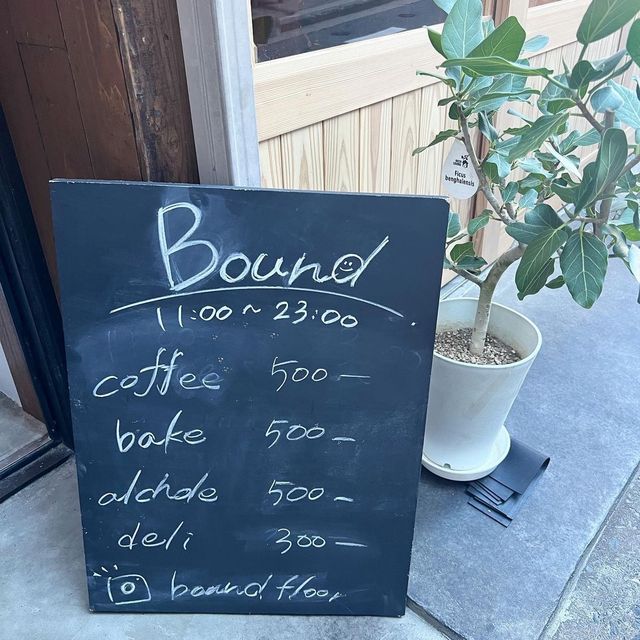 Bound
11:00 ~ 23:00
coffee 500 —
bake 500 —
alchole 500 —
deli 300 —
bound floor
Ficus
benghalensis